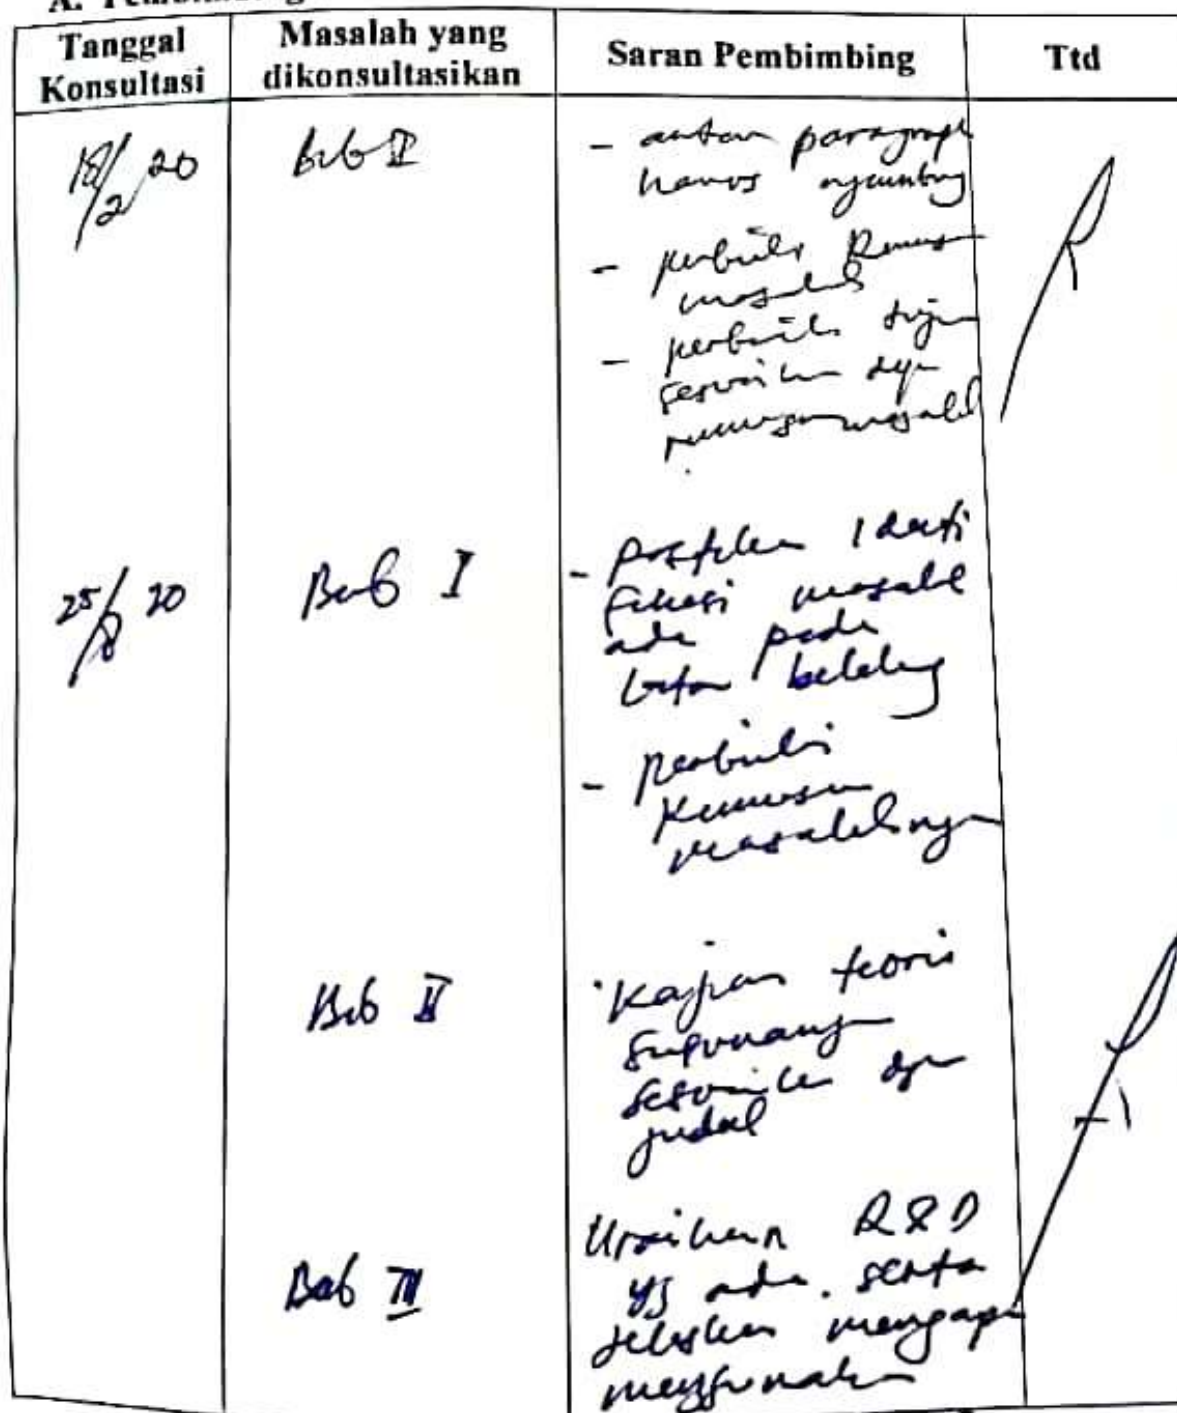 A. Pembimbing
Tanggal Konsultasi
Masalah yang dikonsultasikan
Saran Pembimbing
Ttd
18/2 20
Bab II
- antar paragraph
harus nyambung
- perbaiki Rumusan
masalah
- perbaiki
sesuaikan dgn
rumusan masalah
25/8 20
Bab I
- pastikan identi
fikasi masalah
ada pada
latar belakang
- perbaiki
rumusan
masalahnya
Bab II
Kajian teoris
sesuaikan dgn
judul
Bab III
Uraikan R&D
yg ada. serta
jelaskan mengapa
menggunakan